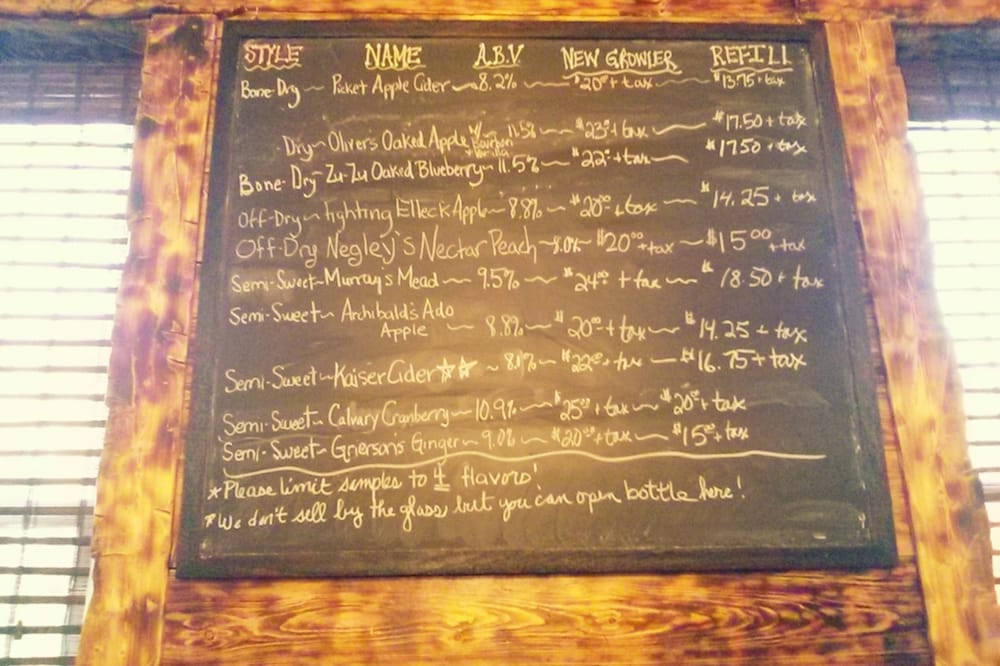 STYLE NAME A.B.V NEW GROWLER REFILL
Bone-Dry ~ Picket Apple Cider ~ 8.2% ~ $20⁰⁰ + tax ~ $13.75 + tax
Dry ~ Oliver's Oaked Apple w/ Bourbon + Vanilla 11.5% ~ $23⁰⁰ + tax ~ $17.50 + tax
Bone-Dry ~ Zu-Zu Oaked Blueberry ~ 11.5% ~ $22⁰⁰ + tax ~ $17.50 + tax
Off-Dry ~ Fighting Elleck Apple ~ 8.8% ~ $20⁰⁰ + tax ~ $14.25 + tax
Off-Dry Negley's Nectar Peach ~ 8.0% ~ $20⁰⁰ + tax ~ $15⁰⁰ + tax
Semi-Sweet ~ Murray's Mead ~ 9.5% ~ $24⁰⁰ + tax ~ $18.50 + tax
Semi-Sweet ~ Archibald's Ado
Apple ~ 8.8% ~ $20⁰⁰ + tax ~ $14.25 + tax
Semi-Sweet ~ Kaiser Cider ☆☆ ~ $22⁰⁰ + tax ~ $16.75 + tax
Semi-Sweet ~ Calvary Cranberry ~ 10.9% ~ $25⁰⁰ + tax ~ $20⁰⁰ + tax
Semi-Sweet ~ Grierson's Ginger ~ 9.0% ~ $20⁰⁰ + tax ~ $15⁰⁰ + tax
* Please limit samples to 4 flavors!
* We don't sell by the glass but you can open bottle here!